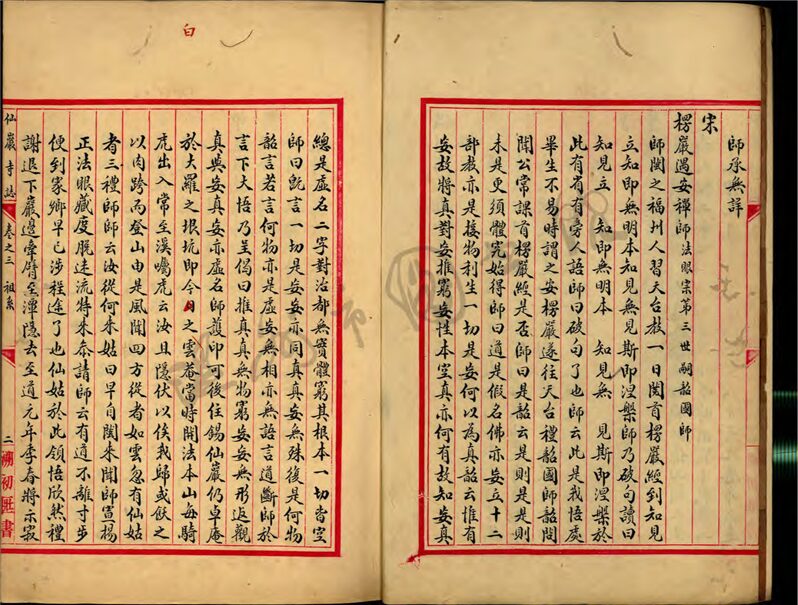 師承無詳
宋
楞嚴遇安禪師法眼宗第三世嗣韶國師
師閩之福州人習天台教一日閱首楞嚴經到知見
立知即無明本知見無見斯即涅槃師乃破句讀曰
知見立 知即無明本 知見無 見斯即涅槃於
此有省有旁人語師曰破句了也師云此是我悟處
畢生不易時謂之安楞嚴遂往天台禮韶國師韶問
聞公常課首楞嚴經是否師曰是韶云是則是是則
未是更須體究始得師曰道是假名佛亦妄立十二
部教亦是接物利生一切是妄何以為真韶云惟有
妄故將真對妄推窮妄性本空真亦何有故知妄真
總是虛名二字對治都無實體窮其根本一切皆空
師曰既言一切是妄妄亦同真真妄無殊復是何物
韶言若言何物亦是虛妄無相亦無語言道斷師於
言下大悟乃呈偈曰推真真無物窮妄妄無形返觀
真與妄真妄亦虛名師護印可後住錫仙巖仍卓庵
於大羅之垠坑即今 之雲菴當時開法本山每騎
虎出入常至溪囑虎云汝且隱伏以俟我歸或飲之
以肉跨而登山由是風聞四方從者如雲忽有仙姑
者三禮師師云汝從何來姑曰早自閩來聞師宣揚
正法眼藏度脫迷流特來參請師云有道不離寸步
便到家鄉早已涉程途了也仙姑於此領悟欣然禮
謝退下巖邊牽臂至潭隱去至道元年季春將示寂
仙巖寺誌
卷之三 祖系
二
溯初匝書
白